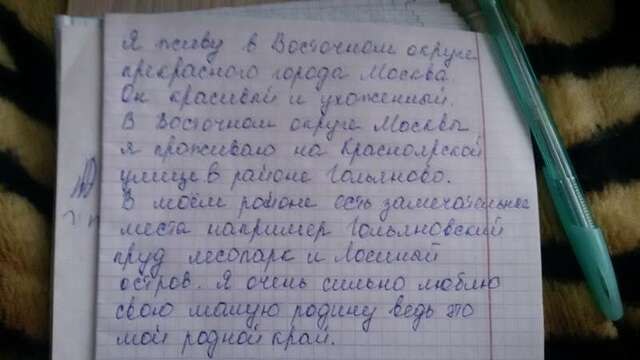 Я живу в Восточном округе
прекрасного города Москва.
Он красивый и ухоженный.
В Восточном округе Москвы
я проживаю на Красноярской
улице в районе Гольяново.
В моём районе есть замечательные
места например Гольяновский
пруд лесопарк и Лосиный
остров. Я очень сильно люблю
свою малую родину ведь это
мой родной край.